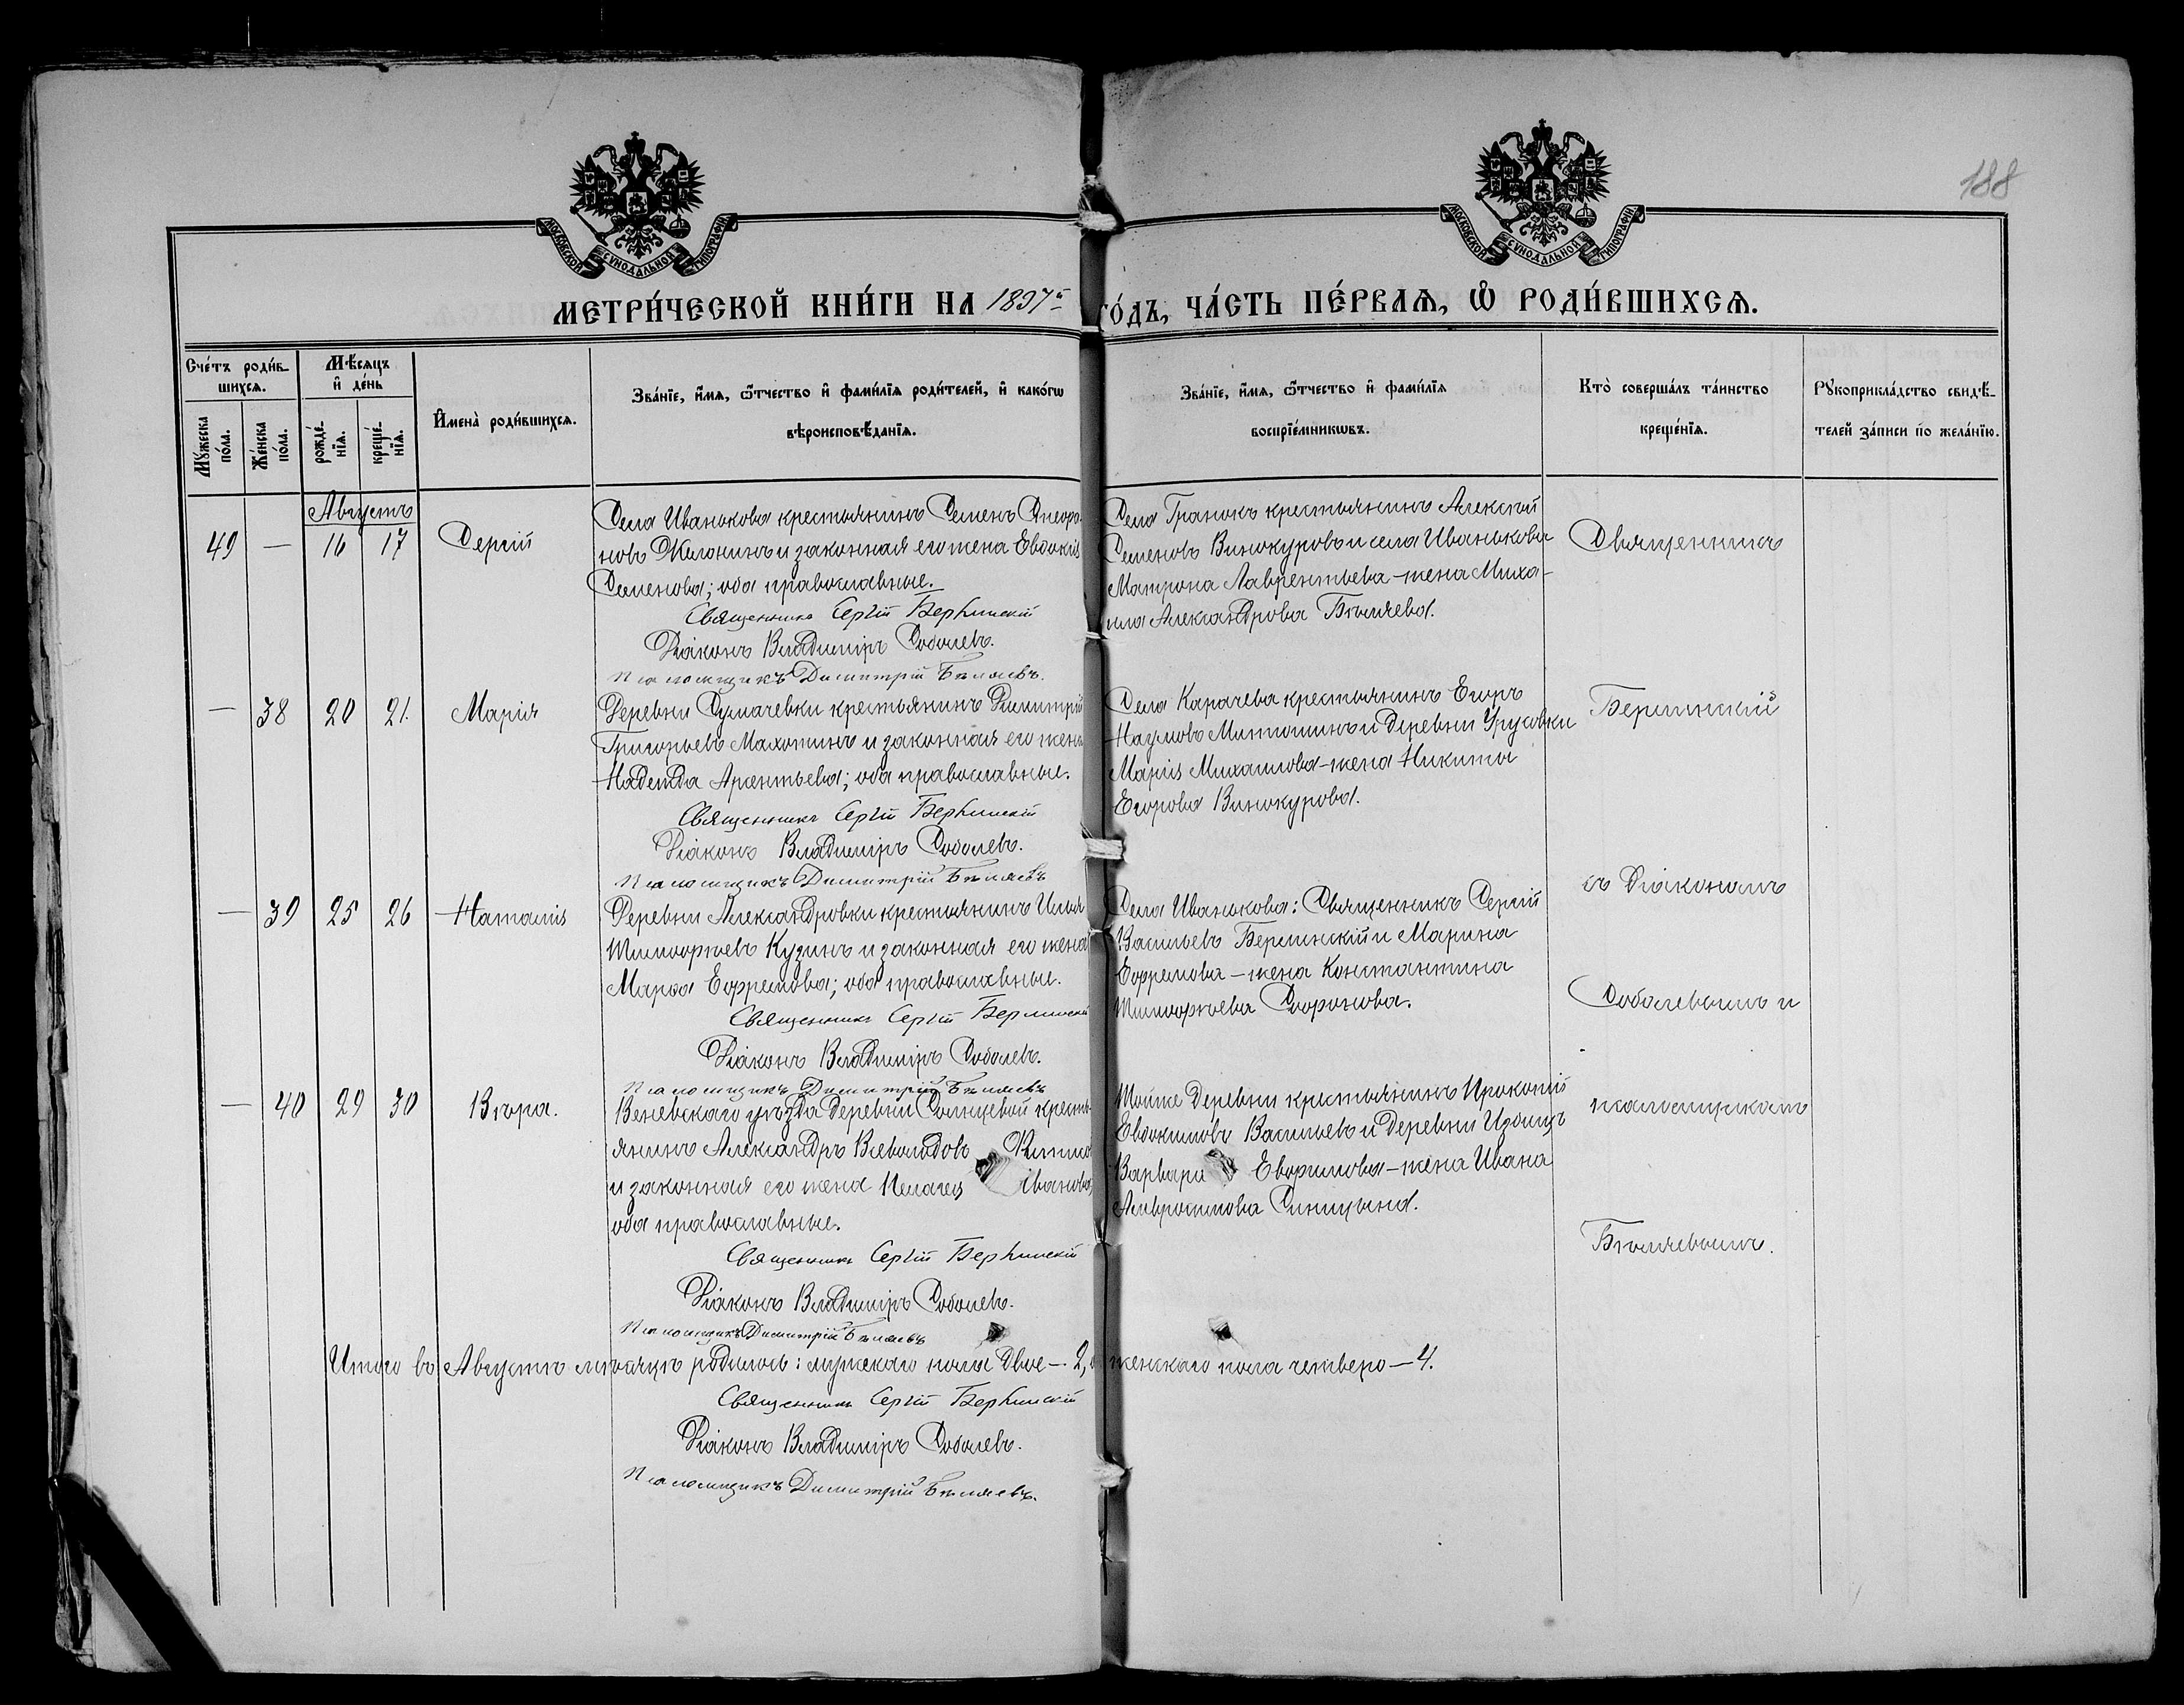 188
МОСКОВСКОЙ СѴНОДАЛЬНОЙ ТИПОГРАФІИ
МОСКОВСКОЙ СѴНОДАЛЬНОЙ ТИПОГРАФІИ
МЕТРИ́ЧЕСКОЙ КНИ́ГИ НА 1897й ГО́ДЪ, ЧА́СТЬ ПЕ́РВАѦ, Ѽ РОДИ́ВШИХСѦ.
Сче́тъ роди́в-
шихсѧ.
Мꙋ́жеска по́ла.
Же́нска по́ла.
Мѣ́сяцъ
и҆ де́нь
рожде́-
нїѧ.
креще́-
нїѧ.
И҆мена̀ роди́вшихсѧ.
Зва́нїе, и҆́мѧ, ѻ҆́тчество и҆ фами́лїѧ роди́телей, и҆ како́гѡ
вѣроисповѣ́данїѧ.
Зва́нїе, и҆́мѧ, ѻ҆́тчество и҆ фами́лїѧ
воспрїе́мникѡвъ.
Кто̀ соверша́лъ та́инство
креще́нїѧ.
Рꙋкоприкла́дство свидѣ́-
телей за́писи по жела́нїю.
Августъ
49 — 16 17 Сергій
Села Иванькова крестьянинъ Семенъ
новъ и законная его жена Евдокія
Семенова; оба православные.
Священникъ Сергій Берлинскій
Діаконъ Владиміръ Соболевъ.
Псаломщикъ Димитрій Бѣляевъ.
Села Гранокъ крестьянинъ Алексѣй
Семеновъ Винокуровъ и села Иванькова
Матрона Лаврентьева – жена Миха-
ила Александрова Бѣляева.
Священникъ
— 38 20 21. Марія
Деревни Сумачевки крестьянинъ Димитрій
Григорьевъ Махотинъ и законная его жена
Надежда Арентьева; оба православные.
Священникъ Сергій Берлинскій
Діаконъ Владиміръ Соболевъ.
Псаломщикъ Димитрій Бѣляевъ
Села Карачева крестьянинъ Егоръ
Наумовъ Митюшинъ и деревни Урусовки
Марія Михаилова – жена Никиты
Егорова Винокурова.
Берлинскій
— 39 25 26 Наталія
Деревни Александровки крестьянинъ Илья
Тимофѣевъ Кузинъ и законная его жена
Марѳа Ефремова; оба православные.
Священникъ Сергій Берлинскій
Діаконъ Владиміръ Соболевъ.
Псаломщикъ Димитрій Бѣляевъ
Села Иванькова: Священникъ Сергій
Васильевъ Берлинскій и Марина
Ефремова – жена Константина
Тимофѣева Сафонова.
съ Діакономъ
Соболевымъ и
— 40 29 30 Вѣра.
Веневскаго уѣзда деревни Солнцевой кресть-
янинъ Александръ Всеволодовъ
и законная его жена Пелагея Иванова,
оба православные.
Священникъ Сергій Берлинскій
Діаконъ Владиміръ Соболевъ.
Псаломщикъ Димитрій Бѣляевъ
Тойже деревни крестьянинъ Прокопій
Евдокимовъ Васильевъ и деревни
Варвара Евфимова – жена Ивана
Амвросимова Синицына.
псаломщикомъ
Бѣляевымъ.
Итого въ Августѣ мѣсяцѣ родилось: мужскаго пола двое – 2, женскаго пола четверо – 4.
Священникъ Сергій Берлинскій
Діаконъ Владиміръ Соболевъ.
Псаломщикъ Димитрій Бѣляевъ.